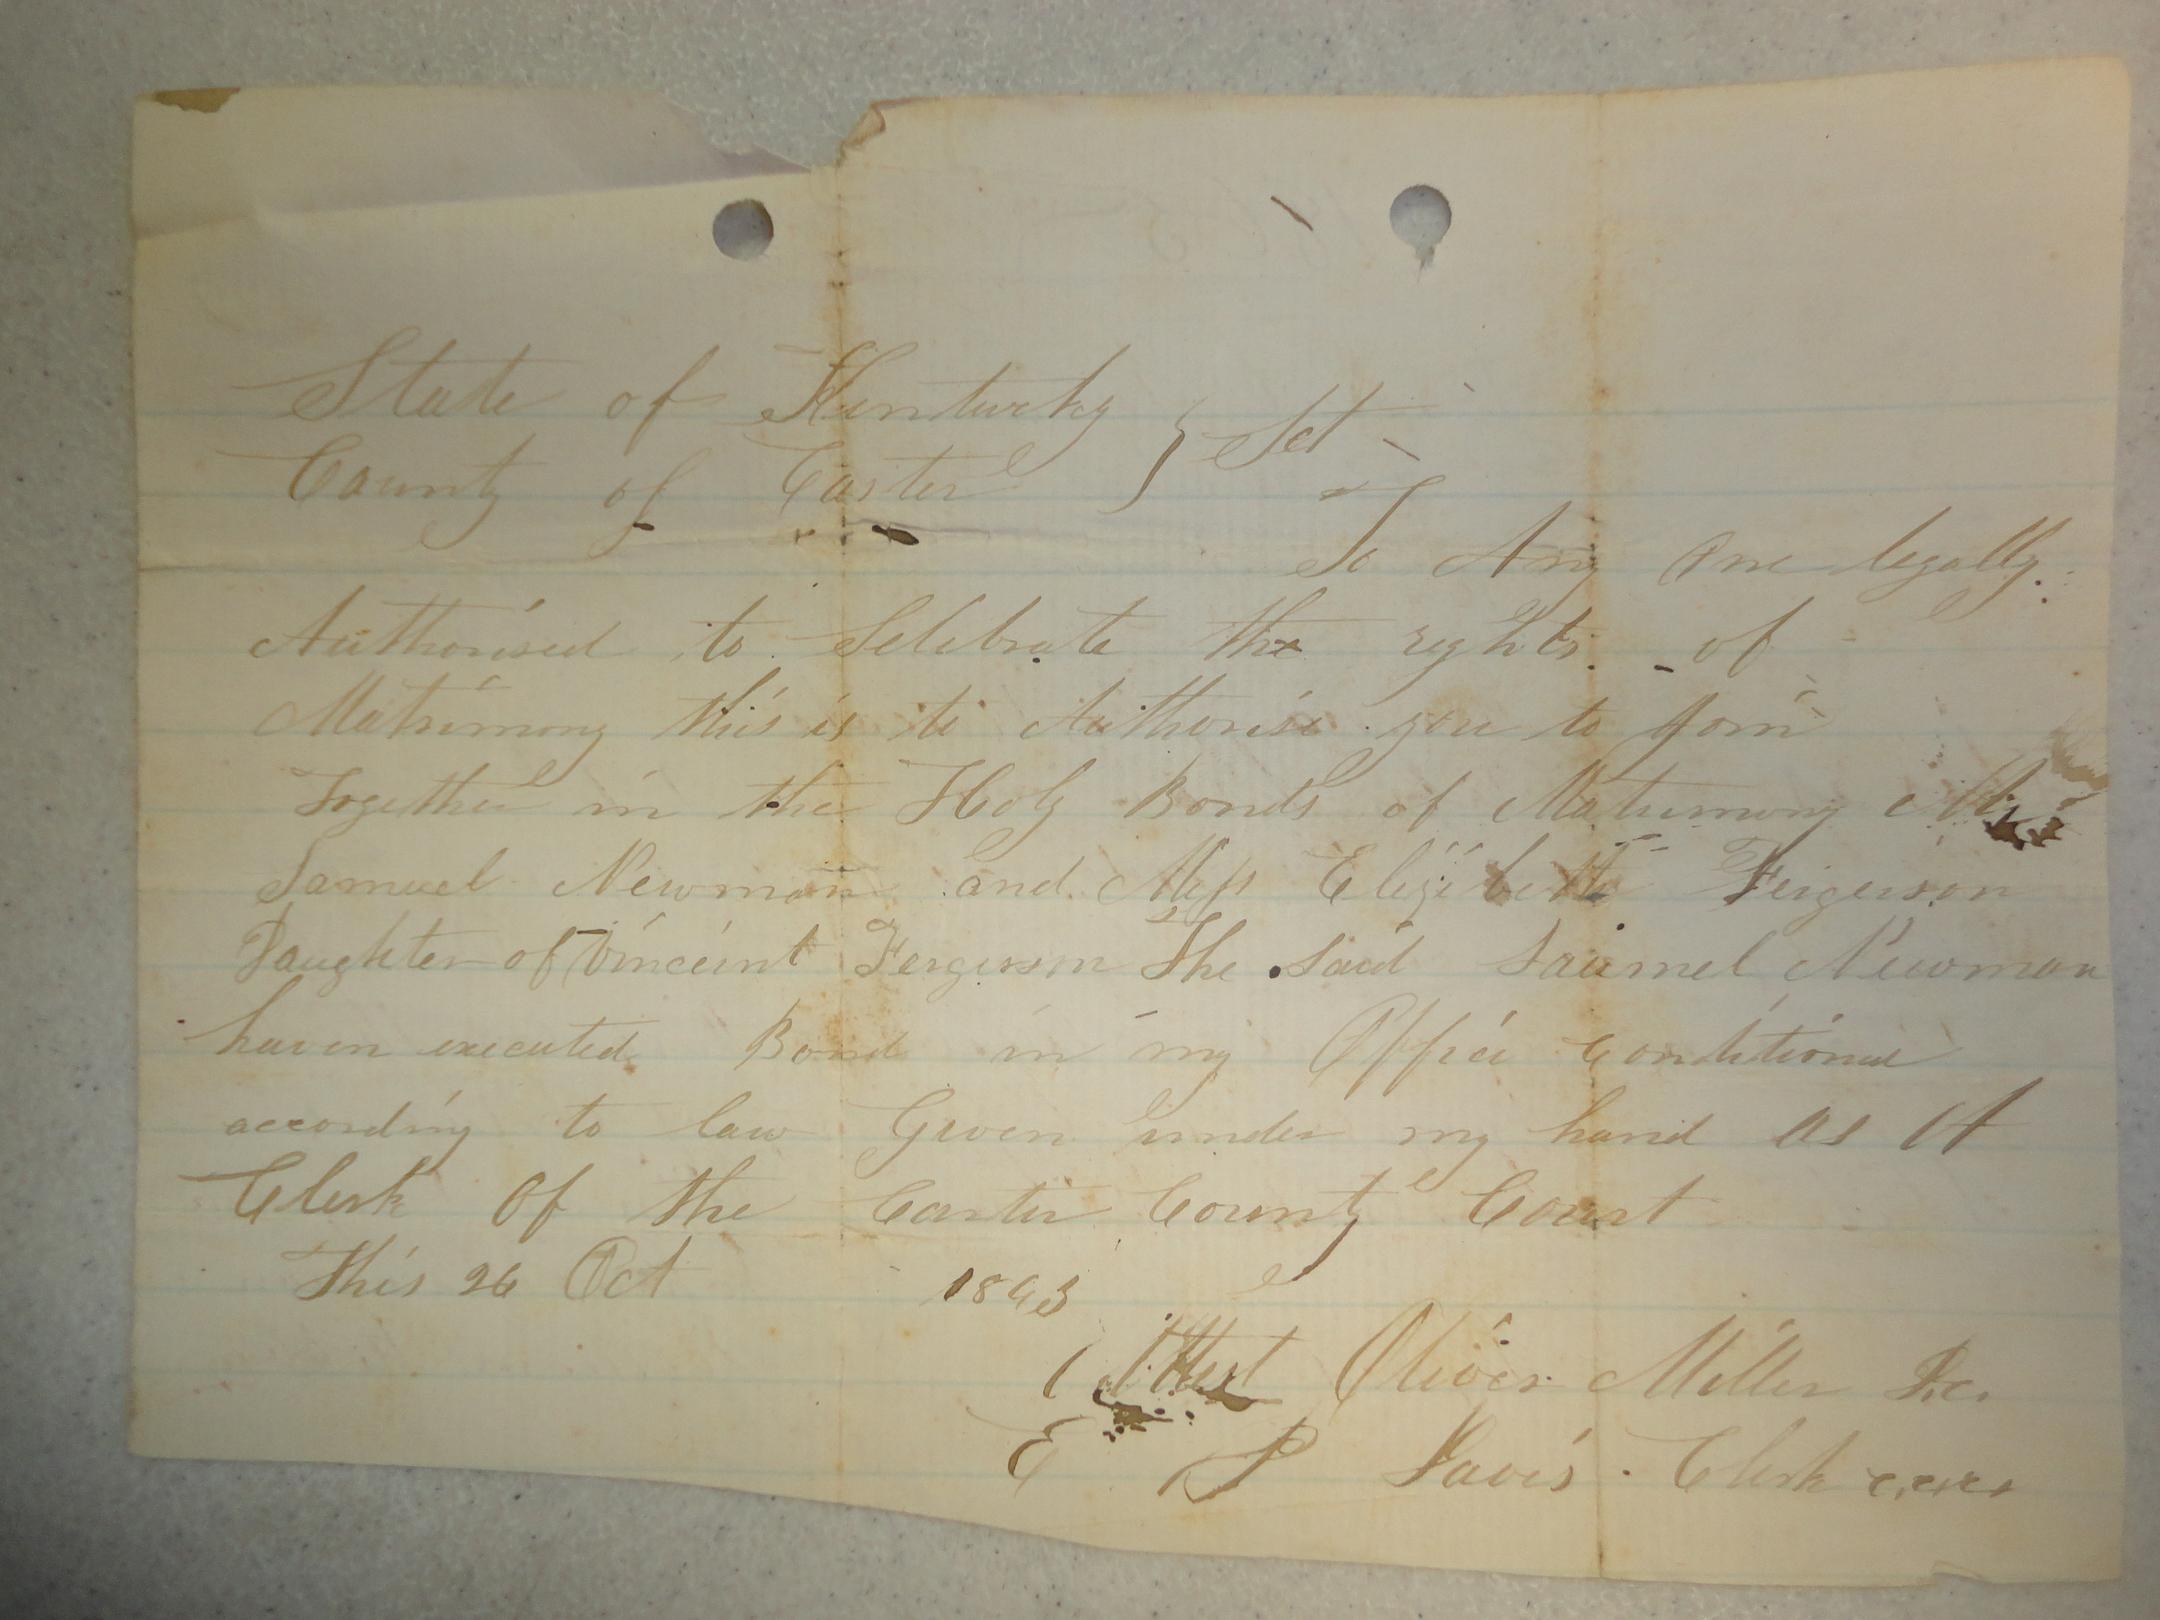 State of Kentucky } Sct
County of Carter
To Any One legally
Authorised to Selebrate the rights of
Matrimony this is to Authorise you to Join
Together in the Holy Bonds of Matrimony Mr
Samuel Newman and Miss Elizibeth Fergerson
Daughter of Vinceint Fergerson The Said Saumel Newman
haven executed Bond in my Office Conditioned
according to law Given under my hand as A
Clerk Of the Carter County Court
This 26 Oct
Attest Oliver Miller
E P Davis Clerk